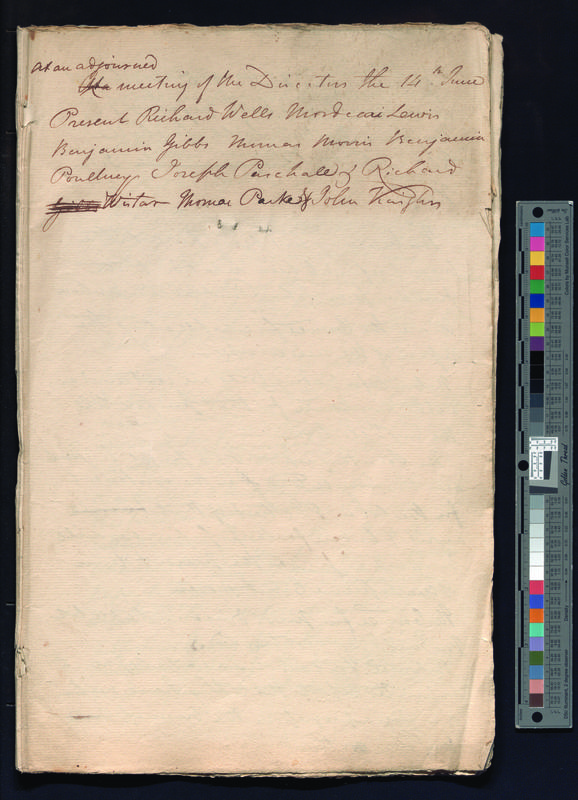 at an adjourned
At a meeting of the Directors the 14th June
Present Richard Wells Mordecai Lewis
Benjamin Gibbs Thomas Morris Benjamin
Poultney Joseph Paschall & Richard
Wistar Thomas Parke & John Kaighn